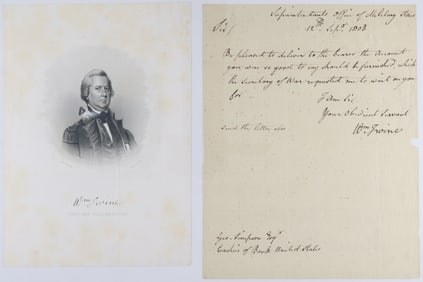 Wm Irvine
Superintendents Office of Military Stores
12th Sept. 1803
Sir/
Be pleased to deliver to the bearer the amount
you were so good to say should be furnished, which
the Secretary of War requested me to wait on you
for —
I am Sir
Your Obedient Servant
Wm Irvine
send the letter also
Geo. Simpson Esqr
Cashier of Bank United States